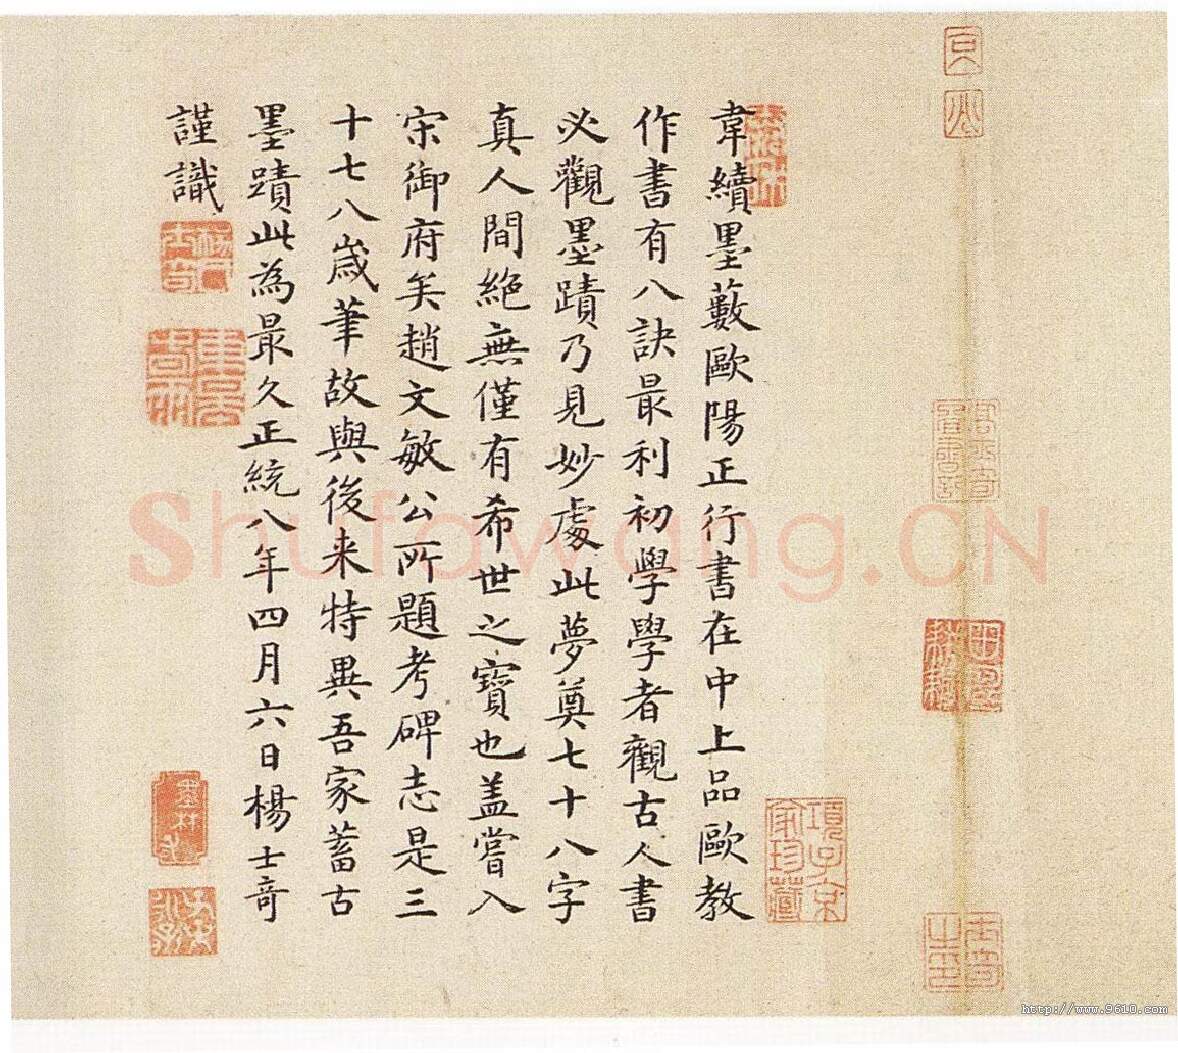 韋續墨藪歐陽正行書在中上品歐教
作書有八訣最利初學學者觀古人書
必觀墨蹟乃見妙處此夢奠七十八字
真人間絕無僅有希世之寶也盖嘗入
宋御府矣趙文敏公所題考碑志是三
十七八歲筆故與後来特異吾家蓄古
墨蹟此為最久正統八年四月六日楊士奇
謹識
項子京
家珍藏
墨林
Shufawang.CN
http://www.9610.com